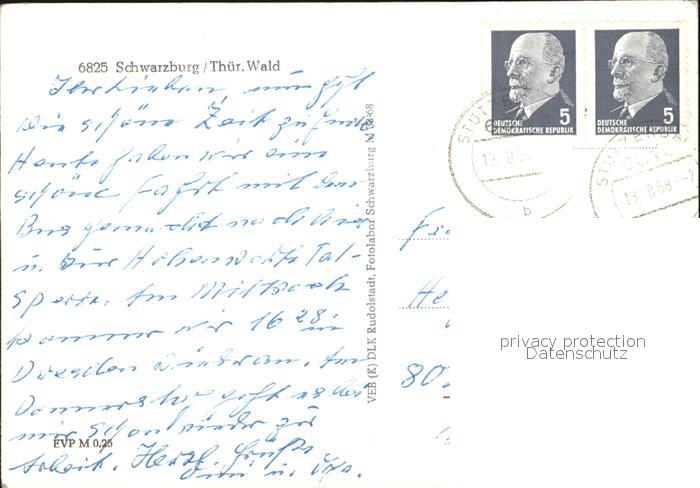 6825 Schwarzburg / Thür. Wald
Ihr Lieben, nun geht
die schöne Zeit zu Ende
Heute haben wir eine
schöne Fahrt mit dem
Bus gemacht nach hier
u. zur Hohenwarte Tal-
sperre. Am Mittwoch
kommen wir 16 28 in
Dresden an. Am
Donnerstag geht es bei
mir schon wieder zur
Arbeit. Herzl. Grüße
u.
FVP M 0,25
VEB (K) DLK Rudolstadt, Fotolabor Schwarzburg M 68-68
5
DEUTSCHE
DEMOKRATISCHE REPUBLIK
5
DEUTSCHE
DEMOKRATISCHE REPUBLIK
b
He
80
privacy protection
Datenschutz